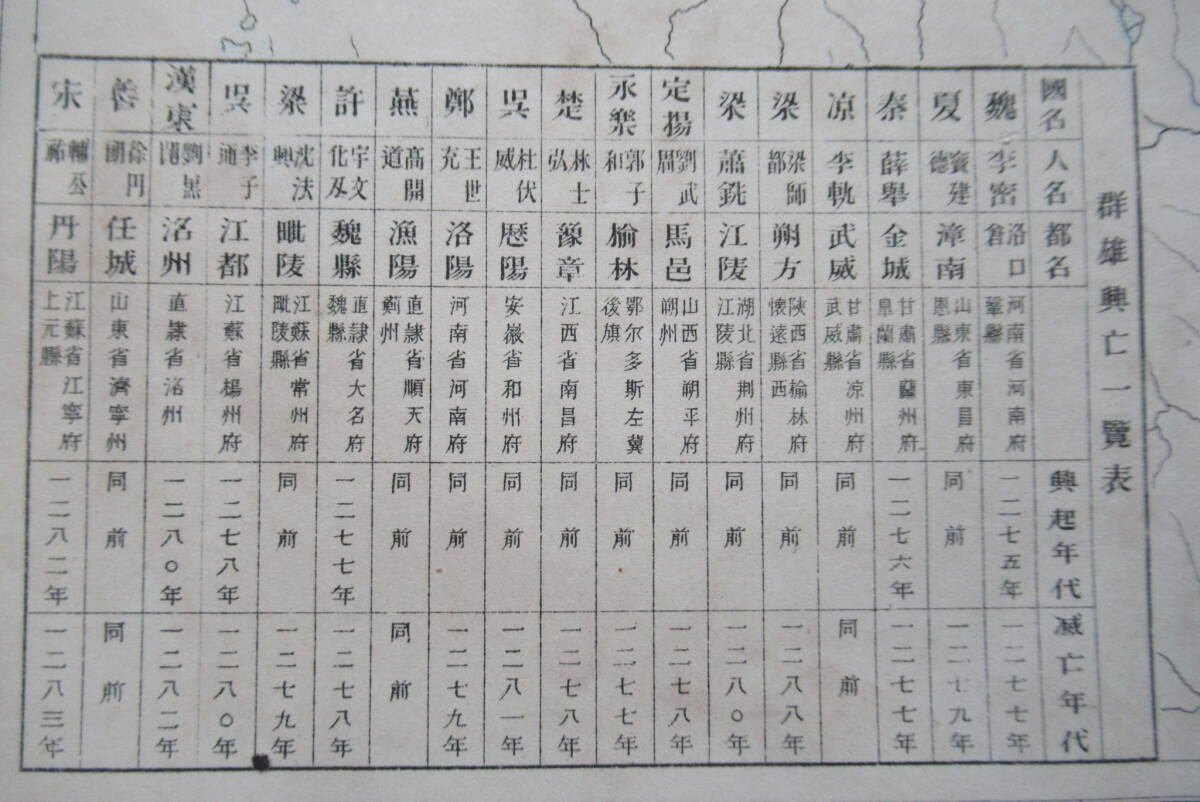 群雄興亡一覽表
國名 人名 都名 興起年代 滅亡年代
魏 李密 洛口倉 河南省河南府鞏縣 一二七五年 一二七七年
夏 竇建德 漳南 山東省東昌府恩縣 同前 一二七九年
秦 薛舉 金城 甘肅省蘭州府皐蘭縣 一二七六年 一二七七年
凉 李軌 武威 甘肅省凉州府武威縣 同前 同前
梁 梁師都 朔方 陝西省榆林府懷遠縣西 同前 一二八八年
梁 蕭銑 江陵 湖北省荆州府江陵縣 同前 一二八〇年
定揚 劉武周 馬邑 山西省朔平府朔州 同前 一二七八年
永樂 郭子和 榆林 鄂尔多斯左翼後旗 同前 一二七七年
楚 林士弘 豫章 江西省南昌府 同前 一二七八年
吳 杜伏威 歷陽 安徽省和州府 同前 一二八一年
鄭 王世充 洛陽 河南省河南府 同前 一二七九年
燕 高開道 漁陽 直隷省順天府薊州 同前 同前
許 宇文化及 魏縣 直隷省大名府魏縣 一二七七年 一二七八年
梁 沈法興 毗陵 江蘇省常州府毗陵縣 同前 一二七九年
吳 李子通 江都 江蘇省楊州府 一二七八年 一二八〇年
漢東 劉黑闥 洺州 直隷省洺州 一二八〇年 一二八二年
徐円朗 任城 山東省濟寧州 同前 同前
宋 輔公祏 丹陽 江蘇省江寧府上元縣 一二八二年 一二八三年